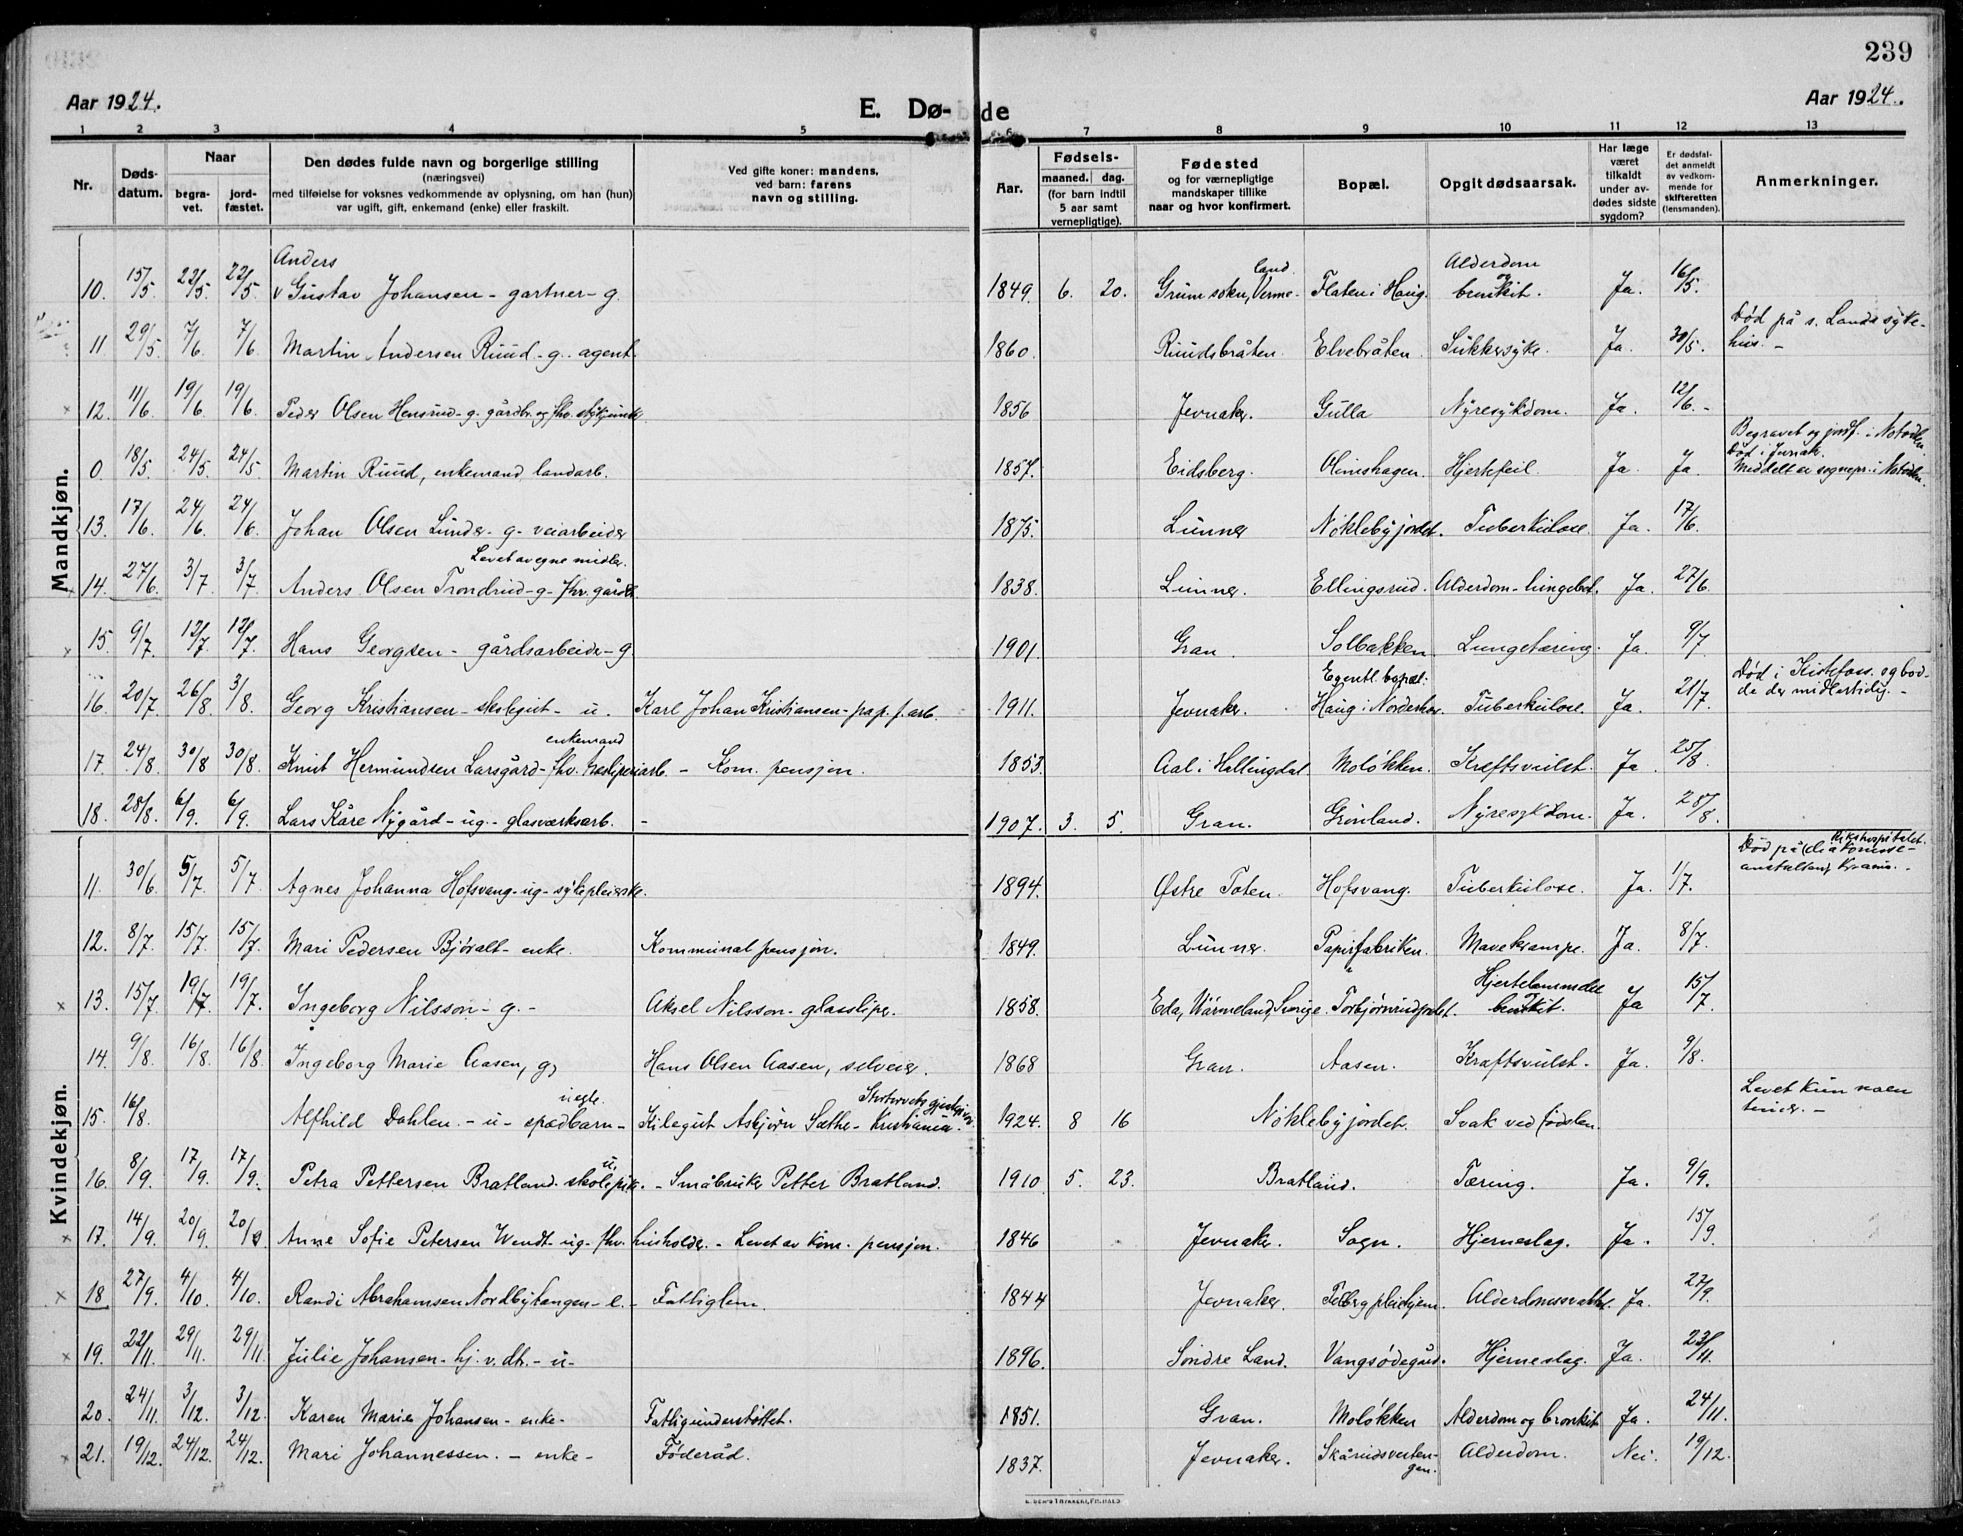 239
Aar 1924.
E. Dø-
de
Aar 1924.
1 2 3 4 5 6 7 8 9 10 11 12 13
Nr.
Døds-
datum.
Naar
begra-
vet.
jord-
fæstet.
Den dødes fulde navn og borgerlige stilling
(næringsvei)
med tilføielse for voksnes vedkommende av oplysning, om han (hun)
var ugift, gift, enkemand (enke) eller fraskilt.
Ved gifte koner: mandens,
ved barn: farens
navn og stilling.
Aar.
Fødsels-
maaned. dag.
(for barn indtil
5 aar samt
vernepligtige).
Fødested
og for værnepligtige
mandskaper tillike
naar og hvor konfirmert.
Bopæl.
Opgit dødsaarsak.
Har læge
været
tilkaldt
under av-
dødes sidste
sygdom?
Er dødsfal-
det anmeldt
av vedkom-
mende for
skifteretten
(lensmanden).
Anmerkninger.
Mandkjøn.
Anders
10. 15/5 22/5. 22/5. v Gustav Johansen - gartner - g. 1849. 6. 20. Grums sokn, Verme- land. Flaten i Haug. Alderdom og bronkit. Ja. 16/5.
11 29/5 7/6. 7/6 Martin Andersen Ruud - g. agent. 1860. Ruudsbråten. Elvebråten. Sukkersyke. Ja. 30/5. Död på s. Lands syke-
hus. -
12. 11/6. 19/6 19/6. Peder Olsen Hensrud - g. gårdbr. og fhv. 1856 Jevnaker. Gulla Nyresykdom. Ja. 12/6. -
0 18/5 24/5 24/5 Martin Ruud, enkemand landarb. 1857. Eidsberg. Olimshagen. Hjertefeil. Ja. Ja. Begravet og jordf. i Notodden
Död i Jevnak.
Meddelt av sognepr. i Notodden.
13. 17/6. 24/6 24/6. Johan Olsen Lunder - g - veiarbeider 1875. Lunner Nøklebyjordet. Tuberkulose. Ja. 17/6.
Levet av egne midler.
14. 27/6. 3/7 3/7 Anders Olsen Trondrud - g - fhv. gårdbr. 1838. Lunner. Ellingsrud. Alderdom - lungebet. Ja. 27/6.
15. 9/7. 12/7. 12/7. Hans Georgsen - gårdsarbeider - g 1901. Gran. Solbakken. Lungetæring. Ja. 9/7
Egentl. bopæl:
16. 20/7. 26/8 3/8. Georg Kristiansen - skolegut - u. Karl Johan Kristiansen - pap. f. arb. 1911. Jevnaker. Haug i Norderhov. Tuberkulose. Ja. 21/7. Död i Kistefoss. og bod-
de der midlertidig. -
enkemand
17. 24/8. 30/8 30/8. Knut Hermundsen Larsgård - fhv. træsliperiarb. - Kom. pensjon. 1853. Aal i Hallingdal Moløkken. Kræftsvulst. Ja. 25/8
18. 28/8. 6/9. 6/9. Lars Kåre Nygård - ug. - glasværksarb. - 1907. 3. 5. Gran. Grønland. Nyresykdom. Ja. 28/8.
Kvindekjøn.
11. 30/6 5/7 5/7. Agnes Johanna Hofsvang - ug - sykepleierske. 1894. Østre Toten. Hofsvang. Tuberkulose. Ja. 1/7. Rikshospitalet.
Död på (diakonisse-
anstalten) Kr.ania. -
12. 8/7. 15/7. 15/7. Mari Pedersen Bjøralt - enke. Kommunal pensjon. 1849. Lunner. Papirfabriken. Mavekrampe. Ja. 8/7.
13. 15/7. 19/7 19/7. Ingeborg Nilsson - g. - Aksel Nilsson - glassliper. 1858. Eda, Wärmeland, Sverige. Torbjørnrudjordet. Hjertelammelse bronkit. Ja 15/7
14. 9/8. 16/8. 16/8 Ingeborg Marie Aasen, g, Hans Olsen Aasen, selveier. 1868 Gran. Aasen. Kræftsvulst. Ja. 9/8.
15. 16/8. Alfhild Dahlen. - u - spædbarn - uegte. Kilegut Asbjørn Sæthe - Kristiania. 1924. 8 16 Nøklebyjordet. Svak ved fødslen. Levet kun noen
timer. -
16. 8/9. 17/9. 17/9. Petra Pettersen Bratland. skolepike. u. - Småbruker Petter Bratland. 1910 5. 23. Bratland. Tæring. Ja. 9/9.
17. 14/9. 20/9. 20/9 Anne Sofie Petersen Wendt - ug - fhv. husholder. - Levet av kom. pensjon. 1846 Jevnaker. Sogn. Hjerneslag. Ja. 15/9.
18 27/9. 4/10. 4/10. Randi Abrahamsen Nordbytangen - e. - Fattiglem. 1844 Jevnaker. Felberg pleiehjem. Alderdomssvakhet. Ja. 27/9.
19. 22/11. 29/11. 29/11. Julie Johansen - hj. v. dt. - u - 1896. Søndre Land. Vangsødegård. Hjerneslag. Ja. 23/11.
20. 24/11. 3/12. 3/12. Karen Marie Johansen - enke - Fattigunderstøttet. 1851. Gran. Moløkken Alderdom og bronkit Ja. 24/11.
21. 19/12. 24/12. 24/12. Mari Johannessen. - enke - Føderåd. 1837. Jevnaker. Skårudsverten-
gen. Alderdom. Nei. 19/12.